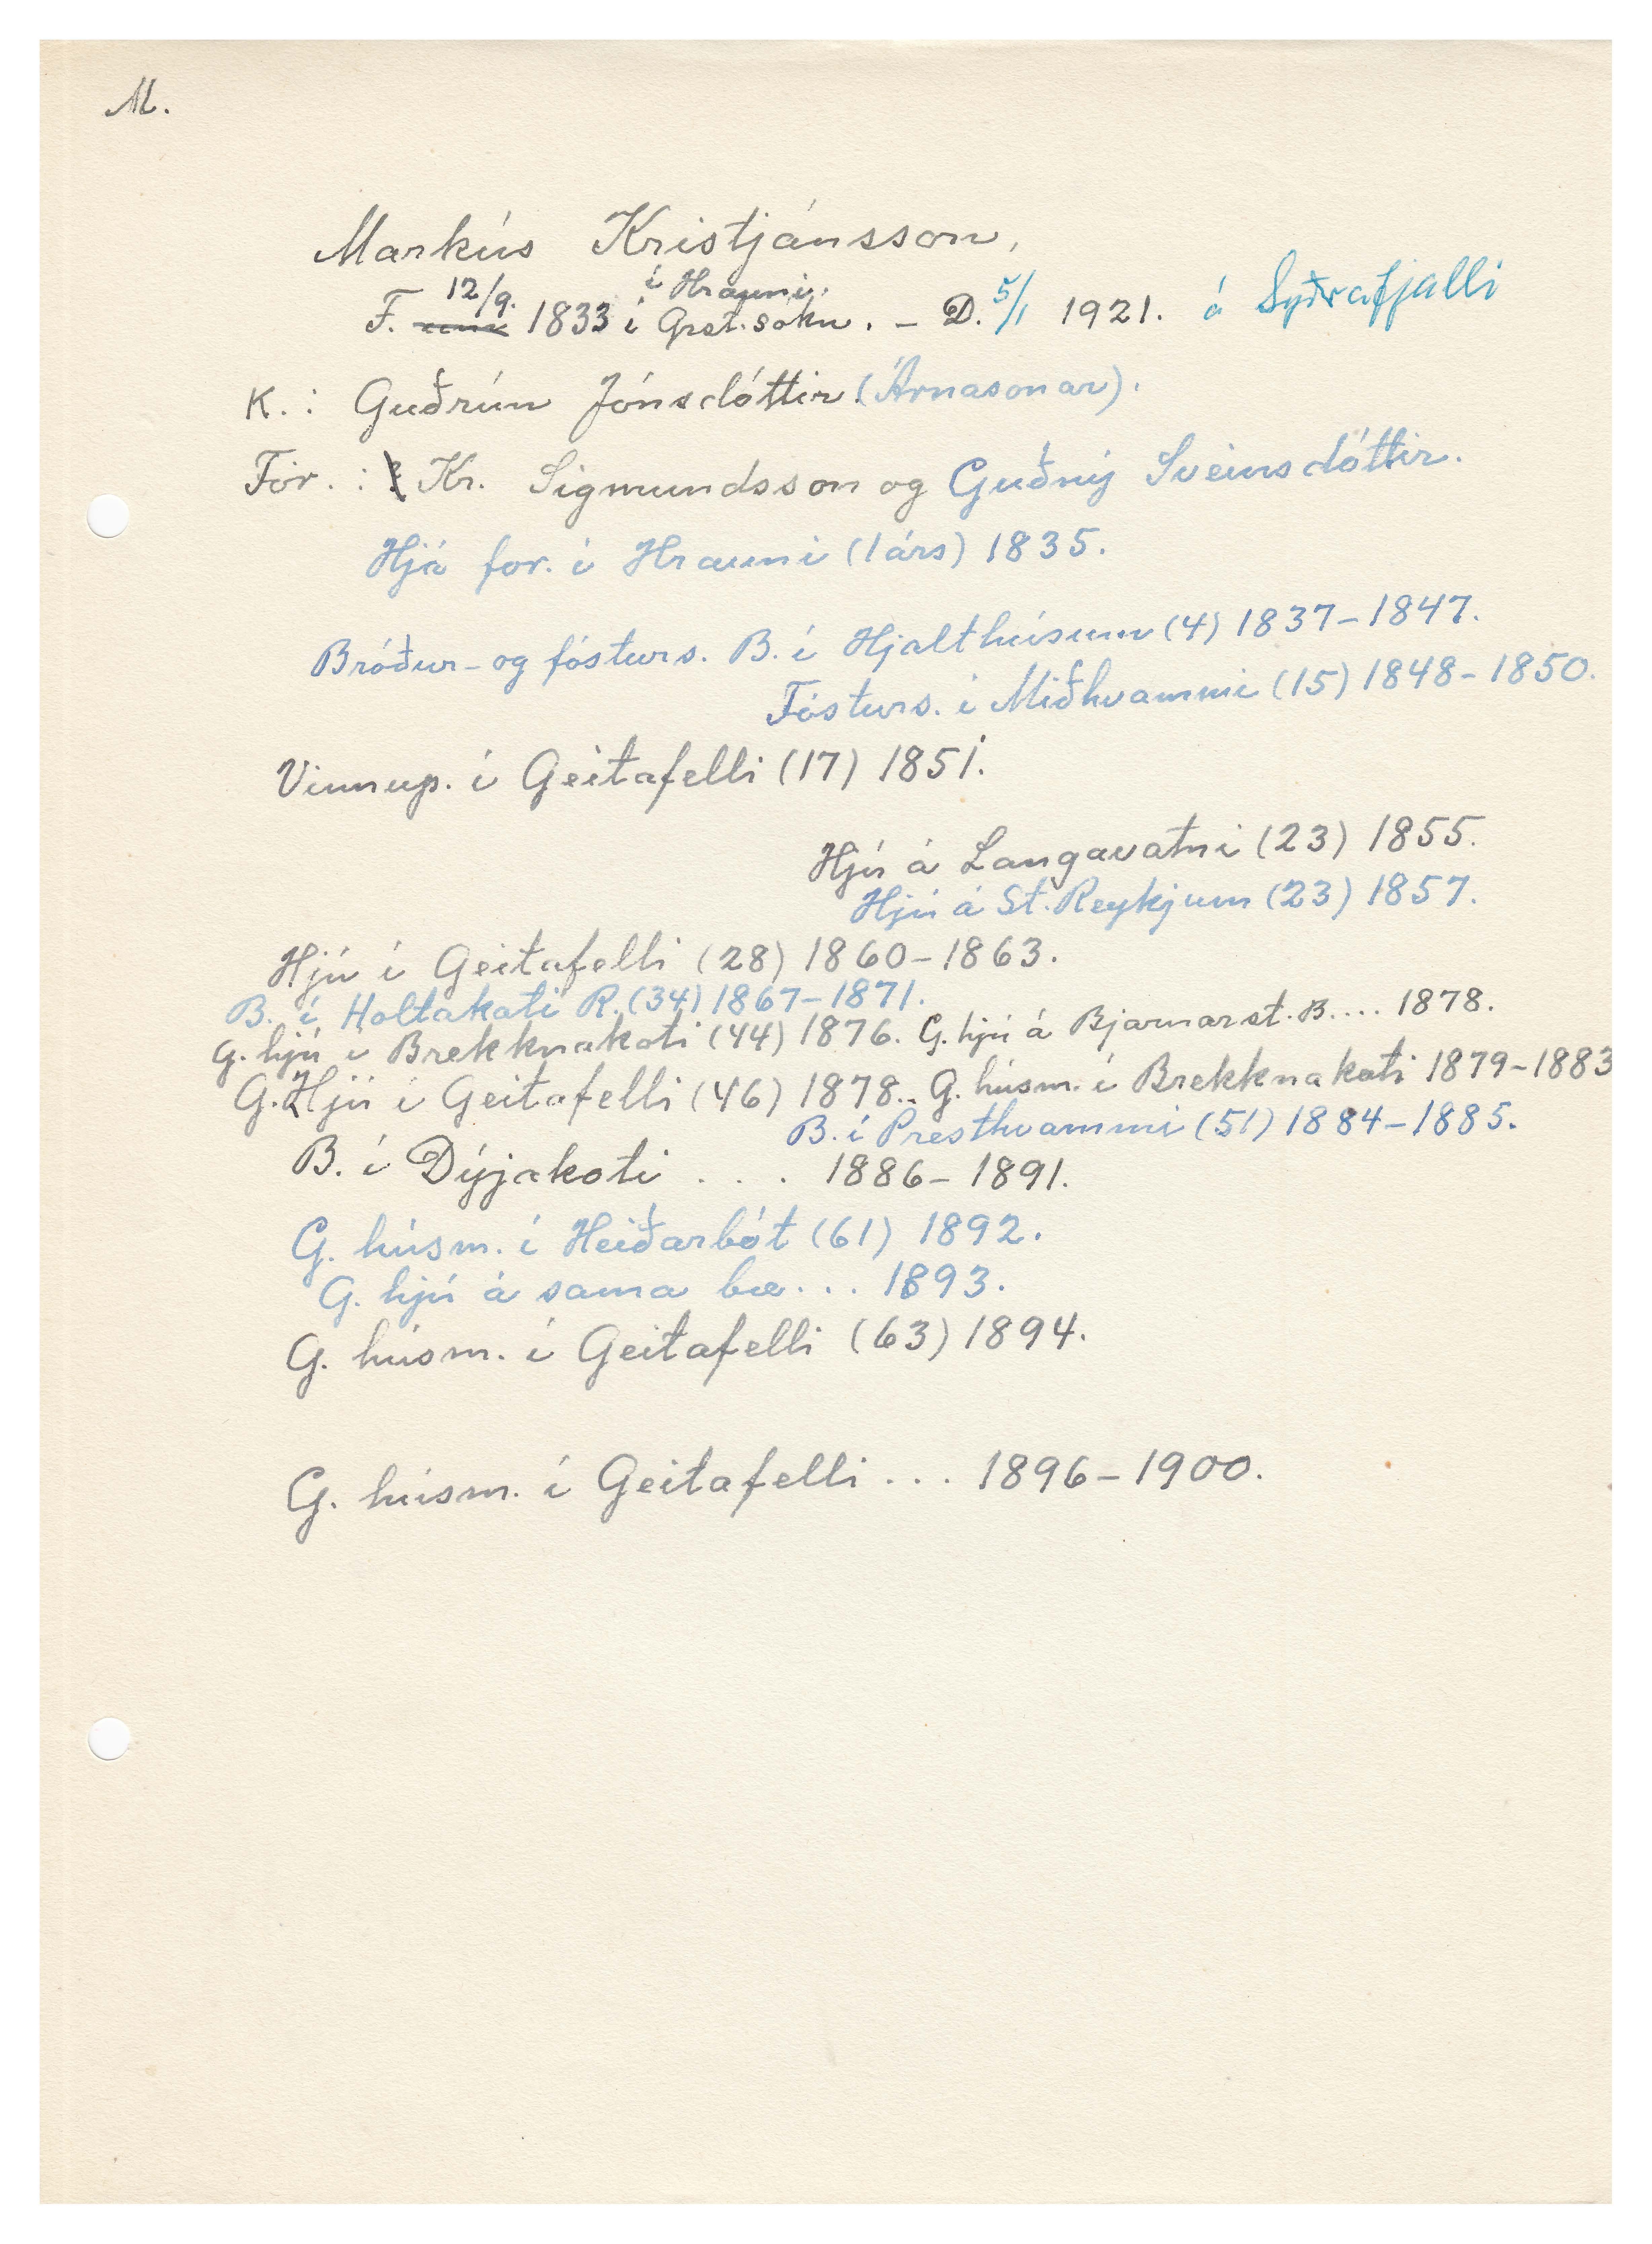 M.
Markús Kristjánsson,
F. 12/9. 1833 í Hrauni, Grst.sókn. - D. 5/1 1921. á Syðrafjalli
K.: Guðrún Jónsdóttir (Árnasonar).
For.: Kr. Sigmundsson og Guðný Sveinsdóttir.
Hjá for. í Hrauni (1 árs) 1835.
Bróður- og fósturs. B. í Hjalthúsum (4) 1837-1847.
Fósturs. í Miðhvammi (15) 1848-1850.
Vinnup. í Geitafelli (17) 1851.
Hjú á Langavatni (23) 1855.
Hjú á St. Reykjum (23) 1857.
Hjú í Geitafelli (28) 1860-1863.
B. í Holtakoti R. (34) 1867-1871.
G. hjú í Brekknakoti (44) 1876. G. hjú á Bjarnarst. B.... 1878.
G. Hjú í Geitafelli (46) 1878.. G. húsm. í Brekknakoti 1879-1883
B. í Presthvammi (51) 1884-1885.
B. í Dýjakoti ... 1886-1891.
G. húsm. í Heiðarbót (61) 1892.
G. hjú á sama bæ... 1893.
G. húsm. í Geitafelli (63) 1894.
G. húsm. í Geitafelli ... 1896-1900.